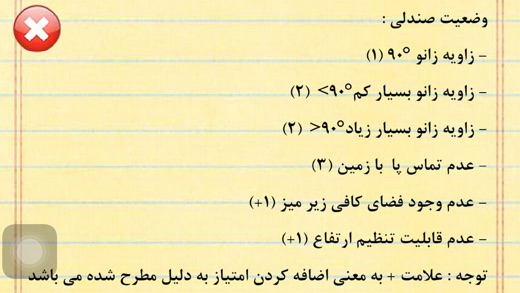 وضعیت صندلی :
- زاویه زانو ۹۰° (۱)
- زاویه زانو بسیار کم ۹۰°> (۲)
- زاویه زانو بسیار زیاد ۹۰°< (۲)
- عدم تماس پا با زمین (۳)
- عدم وجود فضای کافی زیر میز (۱+)
- عدم قابلیت تنظیم ارتفاع (۱+)
توجه : علامت + به معنی اضافه کردن امتیاز به دلیل مطرح شده می باشد